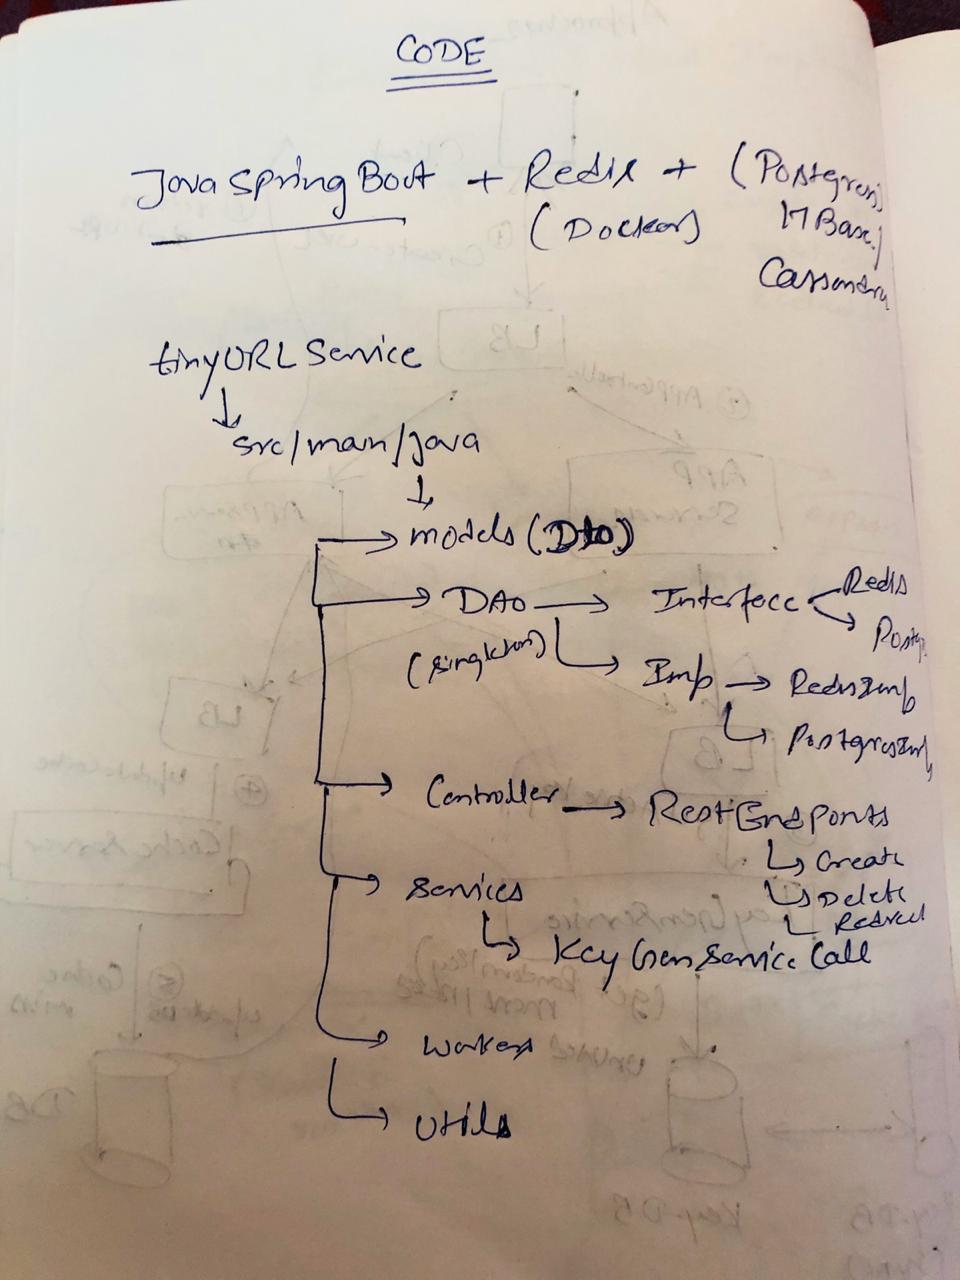 CODE
Java Spring Boot + Redis + (Postgres)
(Docker) HBase/
Cassandra
tinyURL Service
src/main/java
models (Dto)
DAO Interface Redis
Postg
(singleton) Imp RedisImp
PostgresImp
Controller Rest Endponts
Create
Services Delete
Redirect
Key Gen Service Call
Workers
Utils